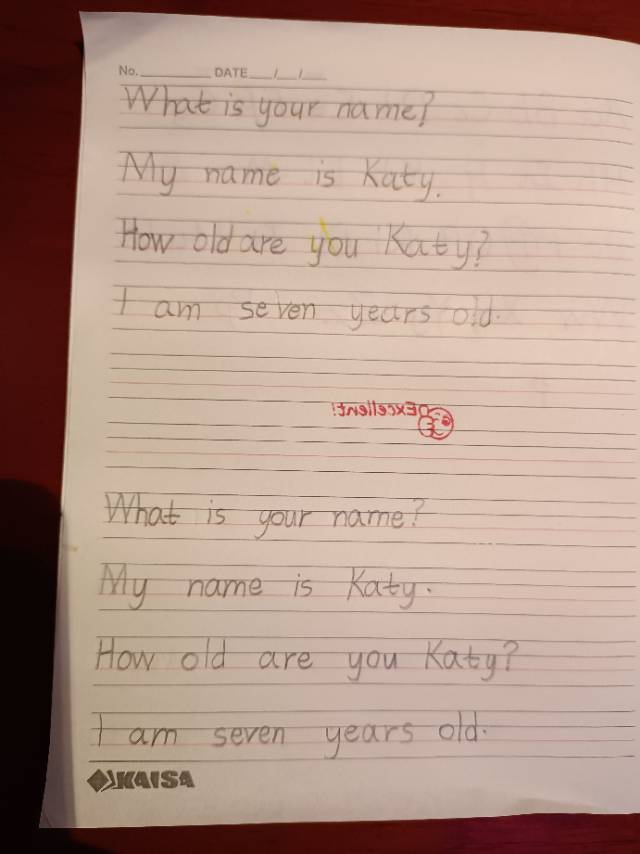 No. DATE / /
What is your name?
My name is Katy.
How old are you Katy?
I am seven years old.
Excellent!
What is your name?
My name is Katy.
How old are you Katy?
I am seven years old.
KAISA